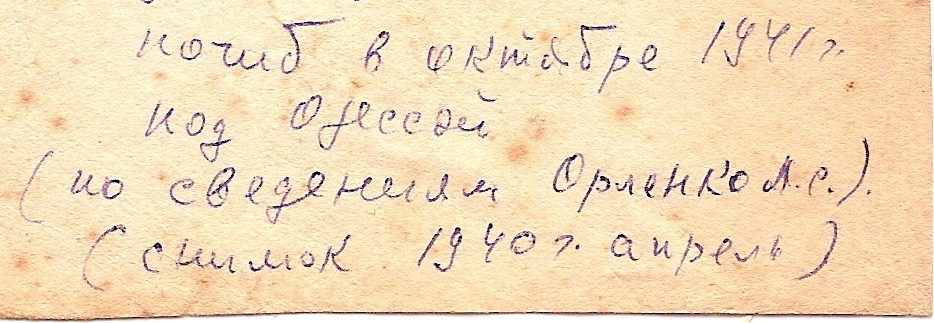 погиб в октябре 1941 г.
под Одессой
(по сведениям Орленко А.С.).
(снимок 1940 г. апрель)